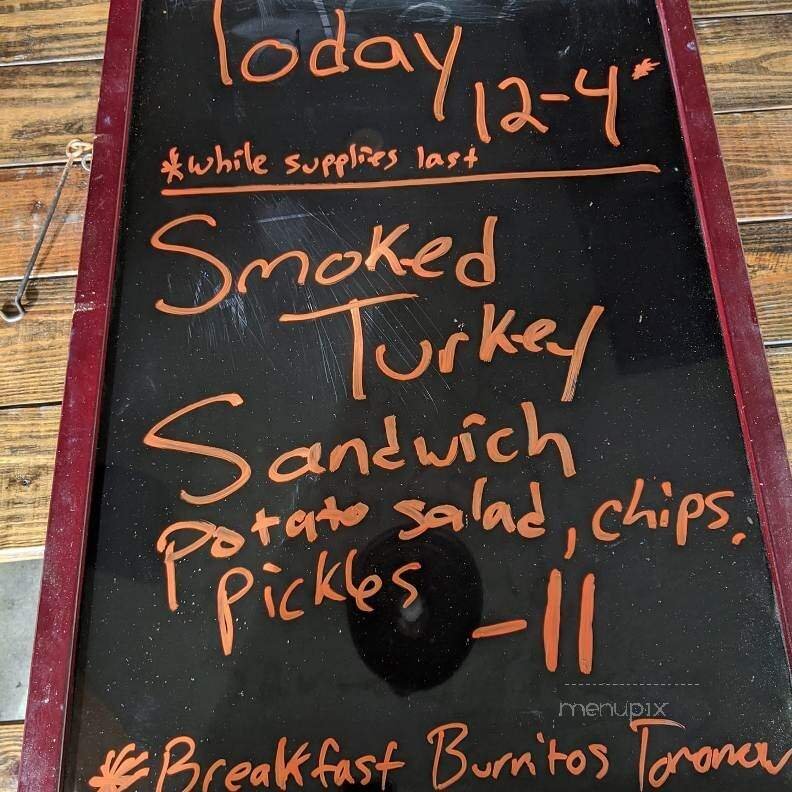 Today
12-4*
*while supplies last
Smoked
Turkey
Sandwich
potato salad, chips,
pickles
-11
menupix
*Breakfast Burritos Tomorrow